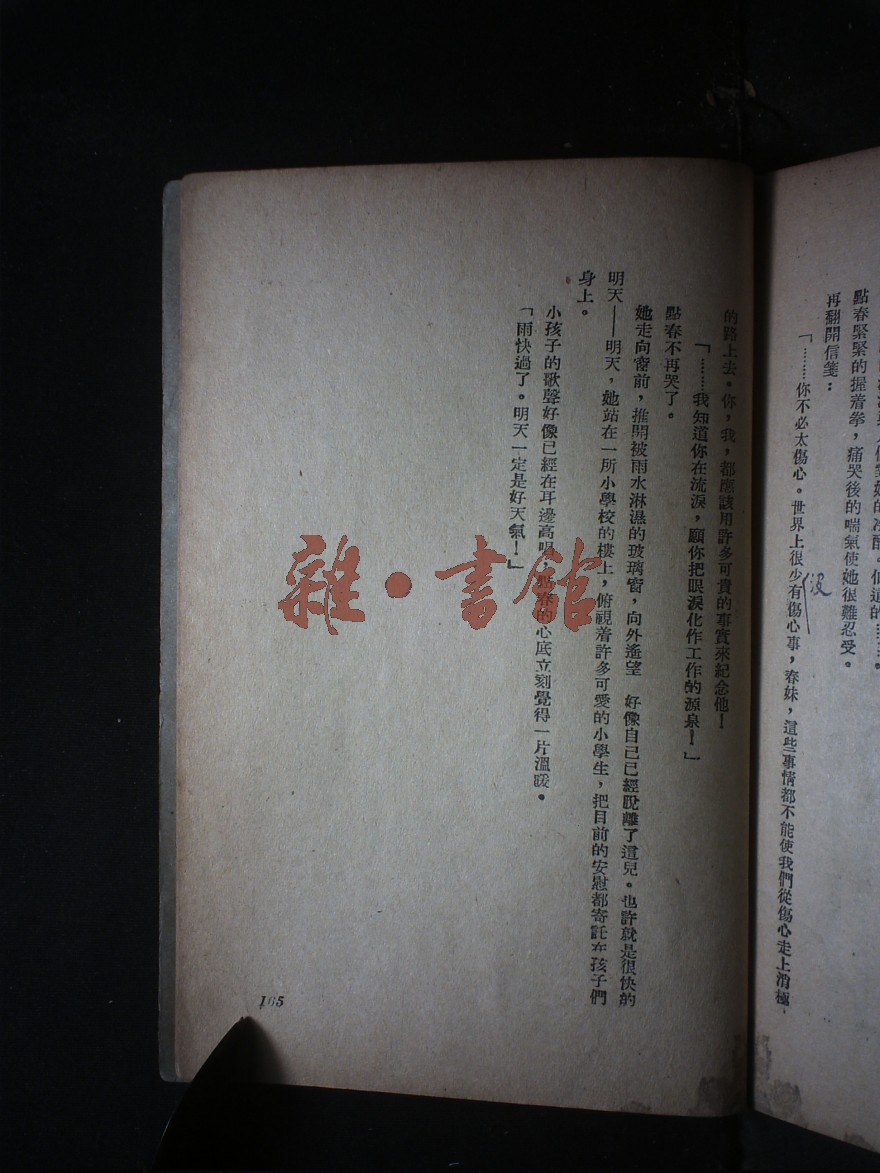 點春緊緊的握着拳，痛哭後的喘氣使她很難忍受。
再翻開信箋：
「………你不必太傷心。世界上很少有傷心事，春妹，這些事情都不能使我們從傷心走上消極，
的路上去。你，我，都應該用許多可貴的事實來紀念他！
「………我知道你在流淚，願你把眼淚化作工作的源泉！」
點春不再哭了。
她走向窗前，推開被雨水淋濕的玻璃窗，向外遙望　好像自己已經脫離了這兒。也許就是很快的
明天——明天，她站在一所小學校的樓上，俯視着許多可愛的小學生，把目前的安慰都寄託在孩子們
身上。
小孩子的歌聲好像已經在耳邊高唱，點春的心底立刻覺得一片溫暖。
「雨快過了。明天一定是好天氣！」
165
雜·書館